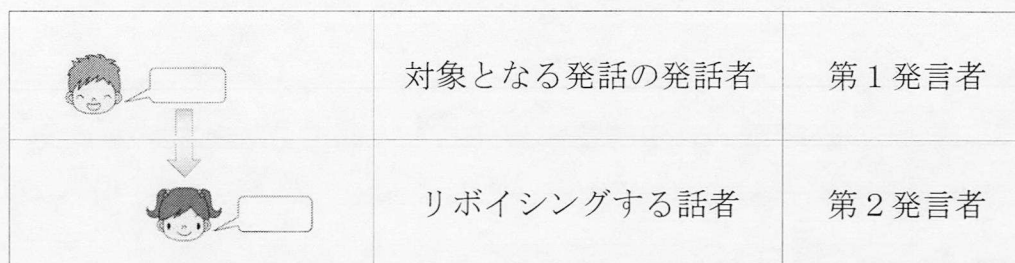 対象となる発話の発話者 第1発言者
リボイシングする話者 第2発言者